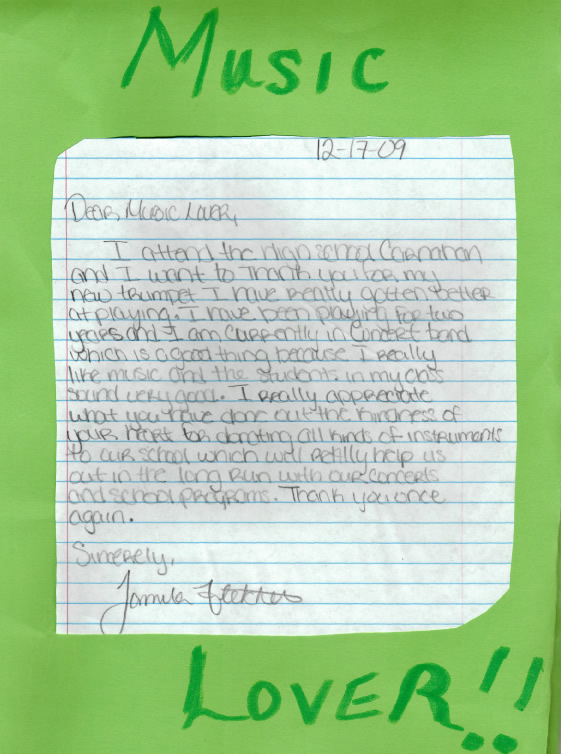 Music
12-17-09
Dear Music Lover,
I attend the high school Carnahan
and I want to Thank you for my
new trumpet I have really gotten better
at playing. I have been playing for two
years and I am currently in Concert band
which is a good thing because I really
like music and the students in my class
sound very good. I really appreciate
what you have done out the kindness of
your heart for donating all kinds of instruments
to our school which will really help us
out in the long run with our concerts
and school programs. Thank you once
again.
Sincerely,
Lover!!